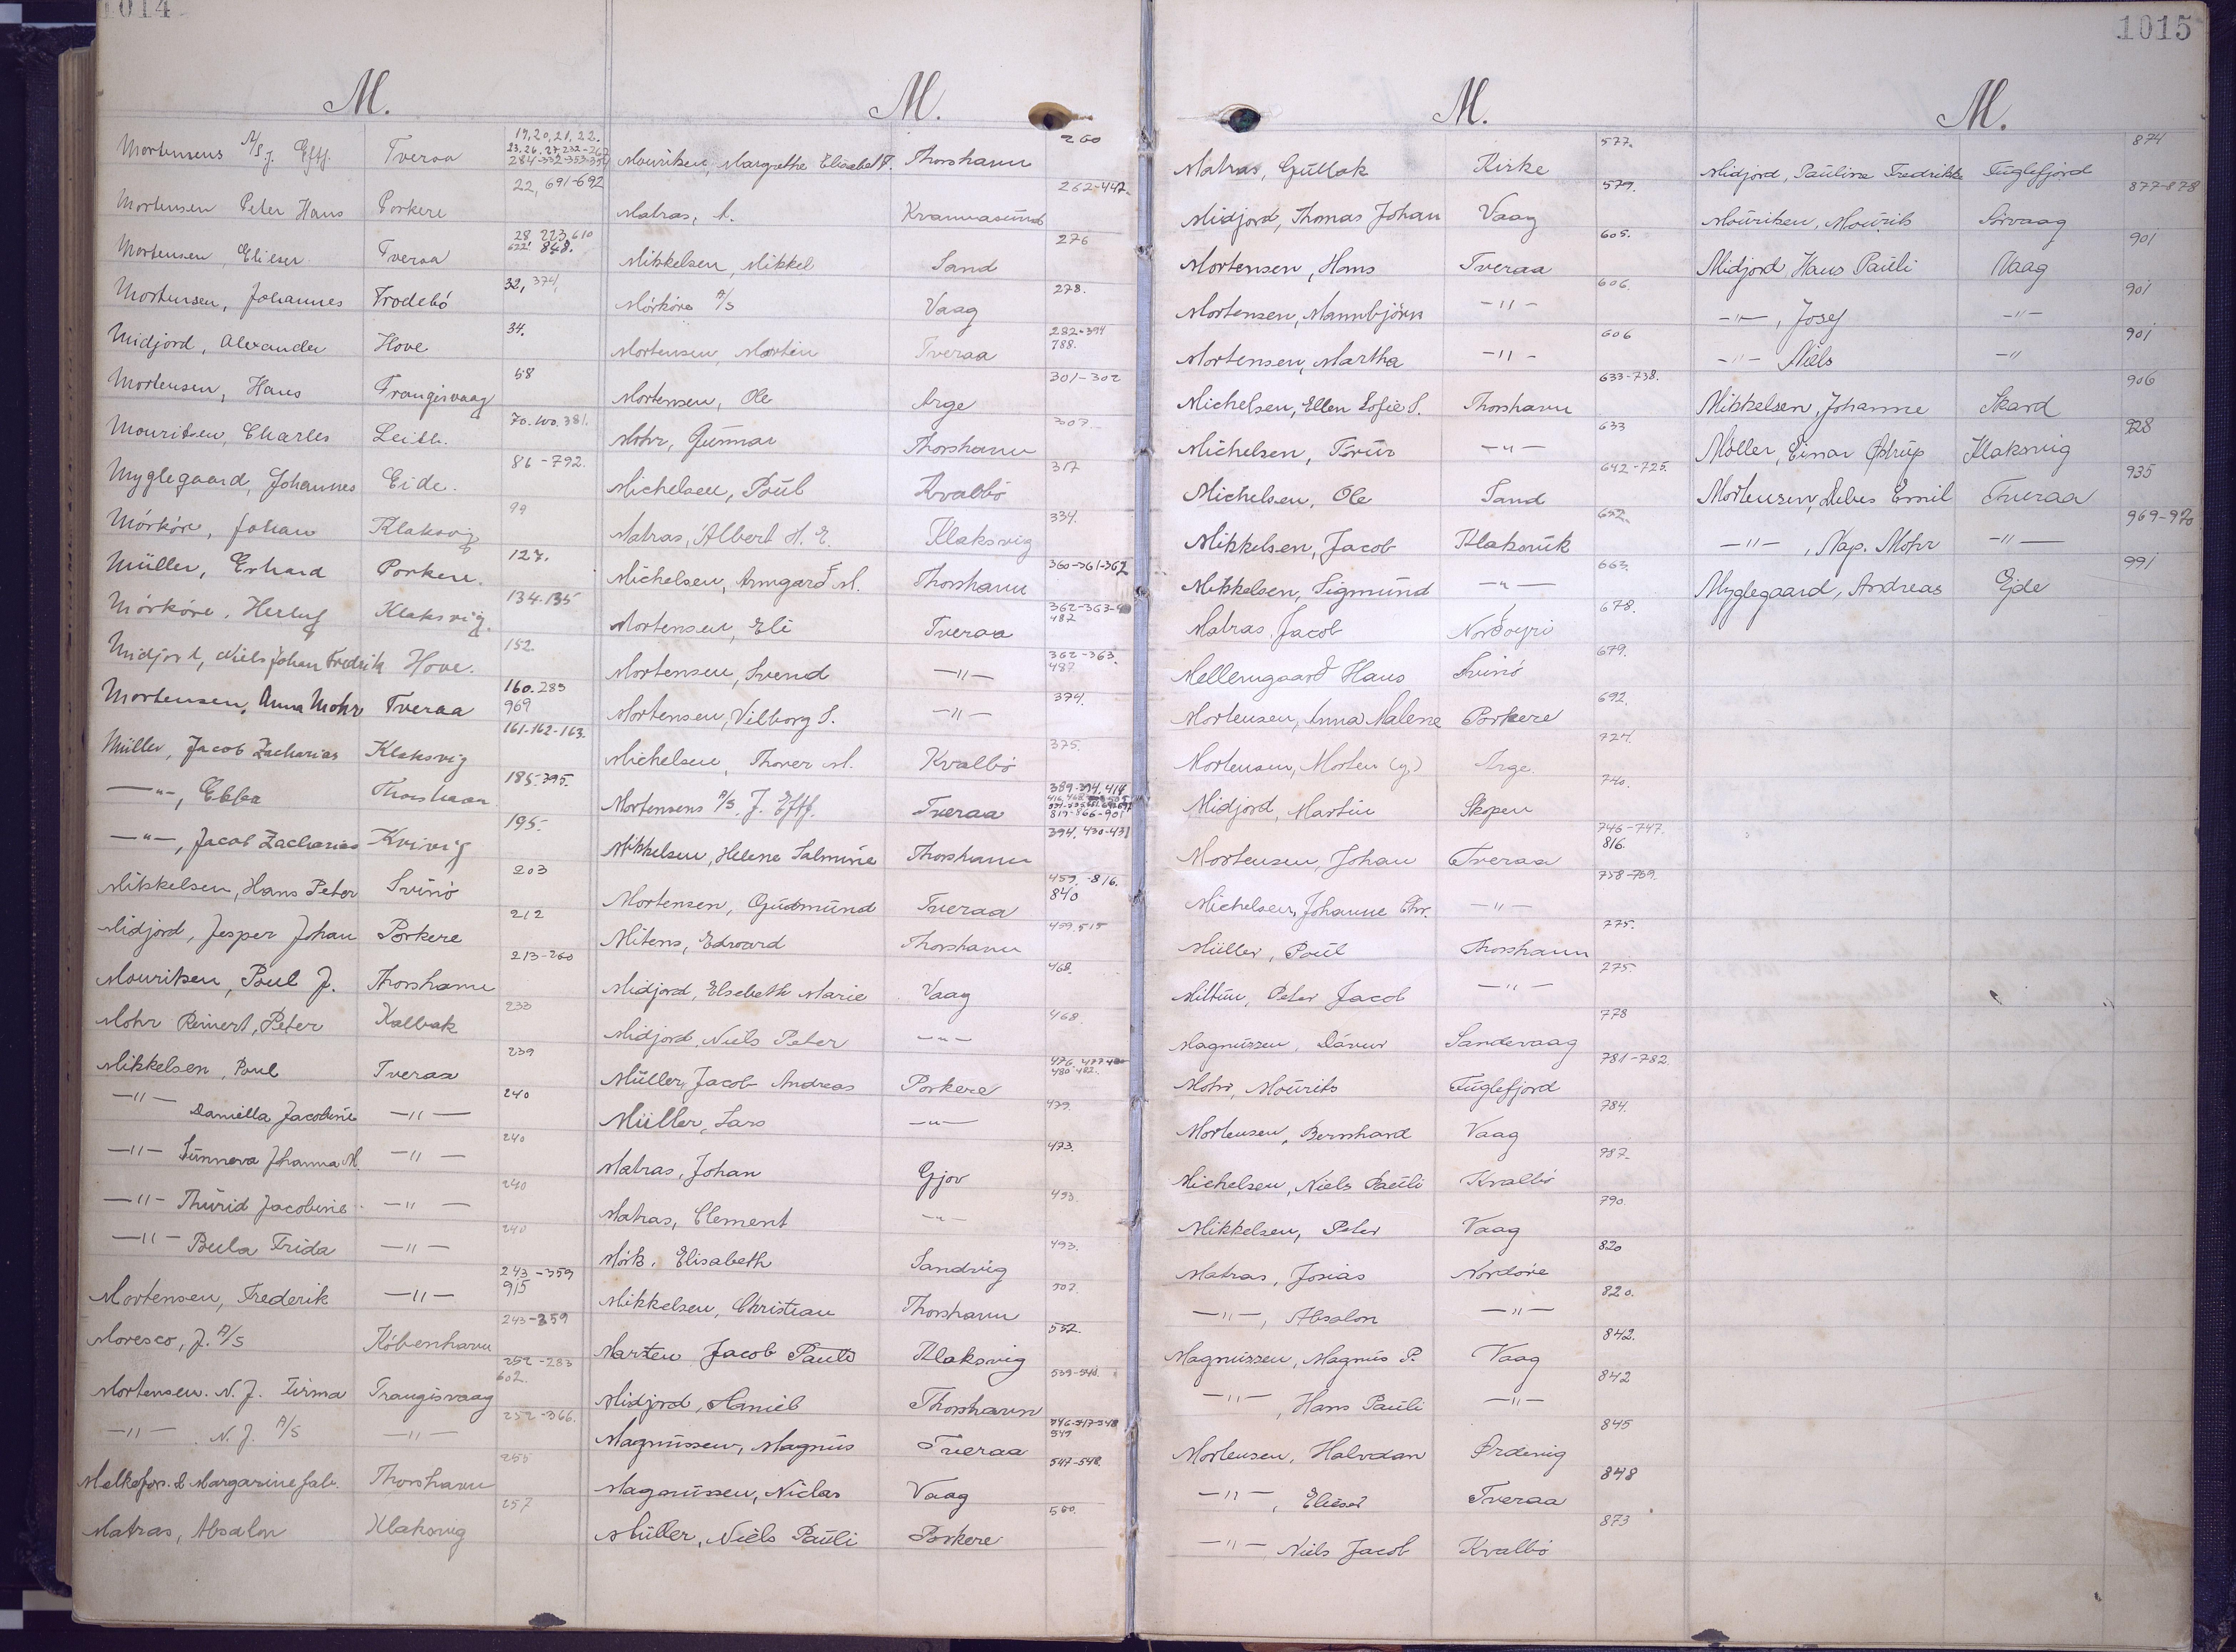 1014
M.
Mortensens A/S J. Eftf. Tveraa 19, 20, 21, 22. 23. 26. 27, 232-267 284-332-353-354
Mortensen Peter Hans Porkere 22, 691-692
Mortensen, Elieser Tveraa 28 223 610 622' 848.
Mortensen, Johannes Frodebó 32, 374,
Midjord, Alexander Hove 34.
Mortensen, Hans Trangisvaag 58
Mouritsen, Charles Leith. 70. 100. 381.
Myglegaard, Johannes Eide. 86-792.
Mórkóre, Johan Klaksvig 99
Müller, Erhard Porkere. 127.
Mórkóre, Herluf Klaksvig. 134-135
Midjord, Niels Johan Fredrik Hove. 152.
Mortensen, Anna Mohr Tveraa 160. 283 969
Müller, Jacob Zacharias Klaksvig 161-162-163.
—"—, Ebba Thorshavn 185-395.
—"—, Jacob Zacharias Kvivig 195.
Mikkelsen, Hans Peter Svinó 203
Midjord, Jesper Johan Porkere 212
Mouritsen, Poul J. Thorshavn 213-260
Mohr Reinert, Peter Kalbak 233
Mikkelsen, Poul Tveraa 239
—"— Daniella Jacobine —"— 240
—"— Sunneva Johanna M. —"— 240
—"— Thurid Jacobine —"— 240
—"— Beula Frida —"— 240
Mortensen, Frederik —"— 243-359 915
Moresco, J. A/S Kóbenhavn 243-359
Mortensen. N. J. Firma Trangisvaag 252-283 602.
—"— N. J. A/S —"— 252-366.
Mælkefors. & Margarinefab. Thorshavn 255
Matras, Absalon Klaksvig 257
M.
Mouritsen, Margrethe Elisabet F. Thorshavn 260
Matras, A. Kvannasund 262-447.
Mikkelsen, Mikkel Sand 276
Mórkóre A/S Vaag 278.
Mortensen, Morten Tveraa 282-394 788.
Mortensen, Ole Arge 301-302
Mohr, Gunnar Thorshavn 307.
Michelsen, Poul Kvalbó 317
Matras, Albert H. E. Klaksvig 334.
Michelsen, Armgard M. Thorshavn 360-361-362
Mortensen, Eli Tveraa 362-363- 487
Mortensen, Svend —"— 362-363. 487
Mortensen, Vilborg S. —"— 374.
Michelsen, Thorer M. Kvalbó 375.
Mortensens A/S. J. Eftf. Tveraa 389-394. 414 817-866-901
Mikkelsen, Helene Salmine Thorshavn 394. 430-431
Mortensen, Gudmund Tveraa 459. 816. 840
Mitens, Edward Thorshavn 459. 515
Midjord, Elsebeth Marie Vaag 468.
Midjord, Niels Peter —"— 468.
Müller, Jacob Andreas Porkere 476. 477 480-482.
Müller, Lars —"— 479.
Matras, Johan Gjov 473.
Matras, Clement —"— 493.
Mórk. Elisabeth Sandvig 493.
Mikkelsen, Christian Thorshavn 507.
Marten Jacob Pauli Klaksvig 532.
Midjord, Daniel Thorshavn 539-540.
Magnussen, Magnus Tveraa 546-547-548 549
Magnussen, Niclas Vaag 547-548.
Müller, Niels Pauli Porkere 560.
1015
M.
Matras, Gutlak Kirke 577.
Midjord, Thomas Johan Vaag 579.
Mortensen, Hans Tveraa 605.
Mortensen, Mannbjörn —"— 606.
Mortensen, Martha —"— 606
Michelsen, Ellen Sofie S. Thorshavn 633-738.
Michelsen, —"— 633
Michelsen, Ole Sand 642-725.
Mikkelsen, Jacob Klaksvik 652.
Mikkelsen, Sigmund —"— 663.
Matras, Jacob Nordoyri 678.
Mellemgaard Hans Svinó 679.
Mortensen, Anna Malene Porkere 692.
Mortensen, Morten (y.) Arge. 724.
Midjord, Martin Skopen 740.
Mortensen, Johan Tveraa 746-747. 816.
Michelsen, Johanne Chr. —"— 758-759.
Müller, Poul Thorshavn 775.
Miltun, Peter Jacob —"— 775.
Magnussen, Dávur Sandevaag 778
Mohr, Mourits Fuglefjord 781-782.
Mortensen, Bernhard Vaag 784.
Michelsen, Niels Pauli Kvalbó 787.
Mikkelsen, Peter Vaag 790.
Matras, Josias Nordóre 820
—"—, Absalon —"— 820.
Magnussen, Magnus P. Vaag 842.
—"—, Hans Pauli —"— 842
Mortensen, Halvdan Ordevig 845
—"—, Elieser Tveraa 848
—"— Niels Jacob Kvalbó 873
M.
Midjord, Pauline Fredrikke Fuglefjord 874
Mouritsen, Mourits Sörvaag 877-878
Midjord, Hans Pauli Vaag 901
—"—, Josef —"— 901
—"— Niels —" 901
Mikkelsen, Johanne Skard 906
Möller, Einar Ostrup Klaksvig 928
Mortensen, Debes Emil Tveraa 935
—"—, Nap. Mohr —"— 969-970
Myglegaard, Andreas Ejde 991